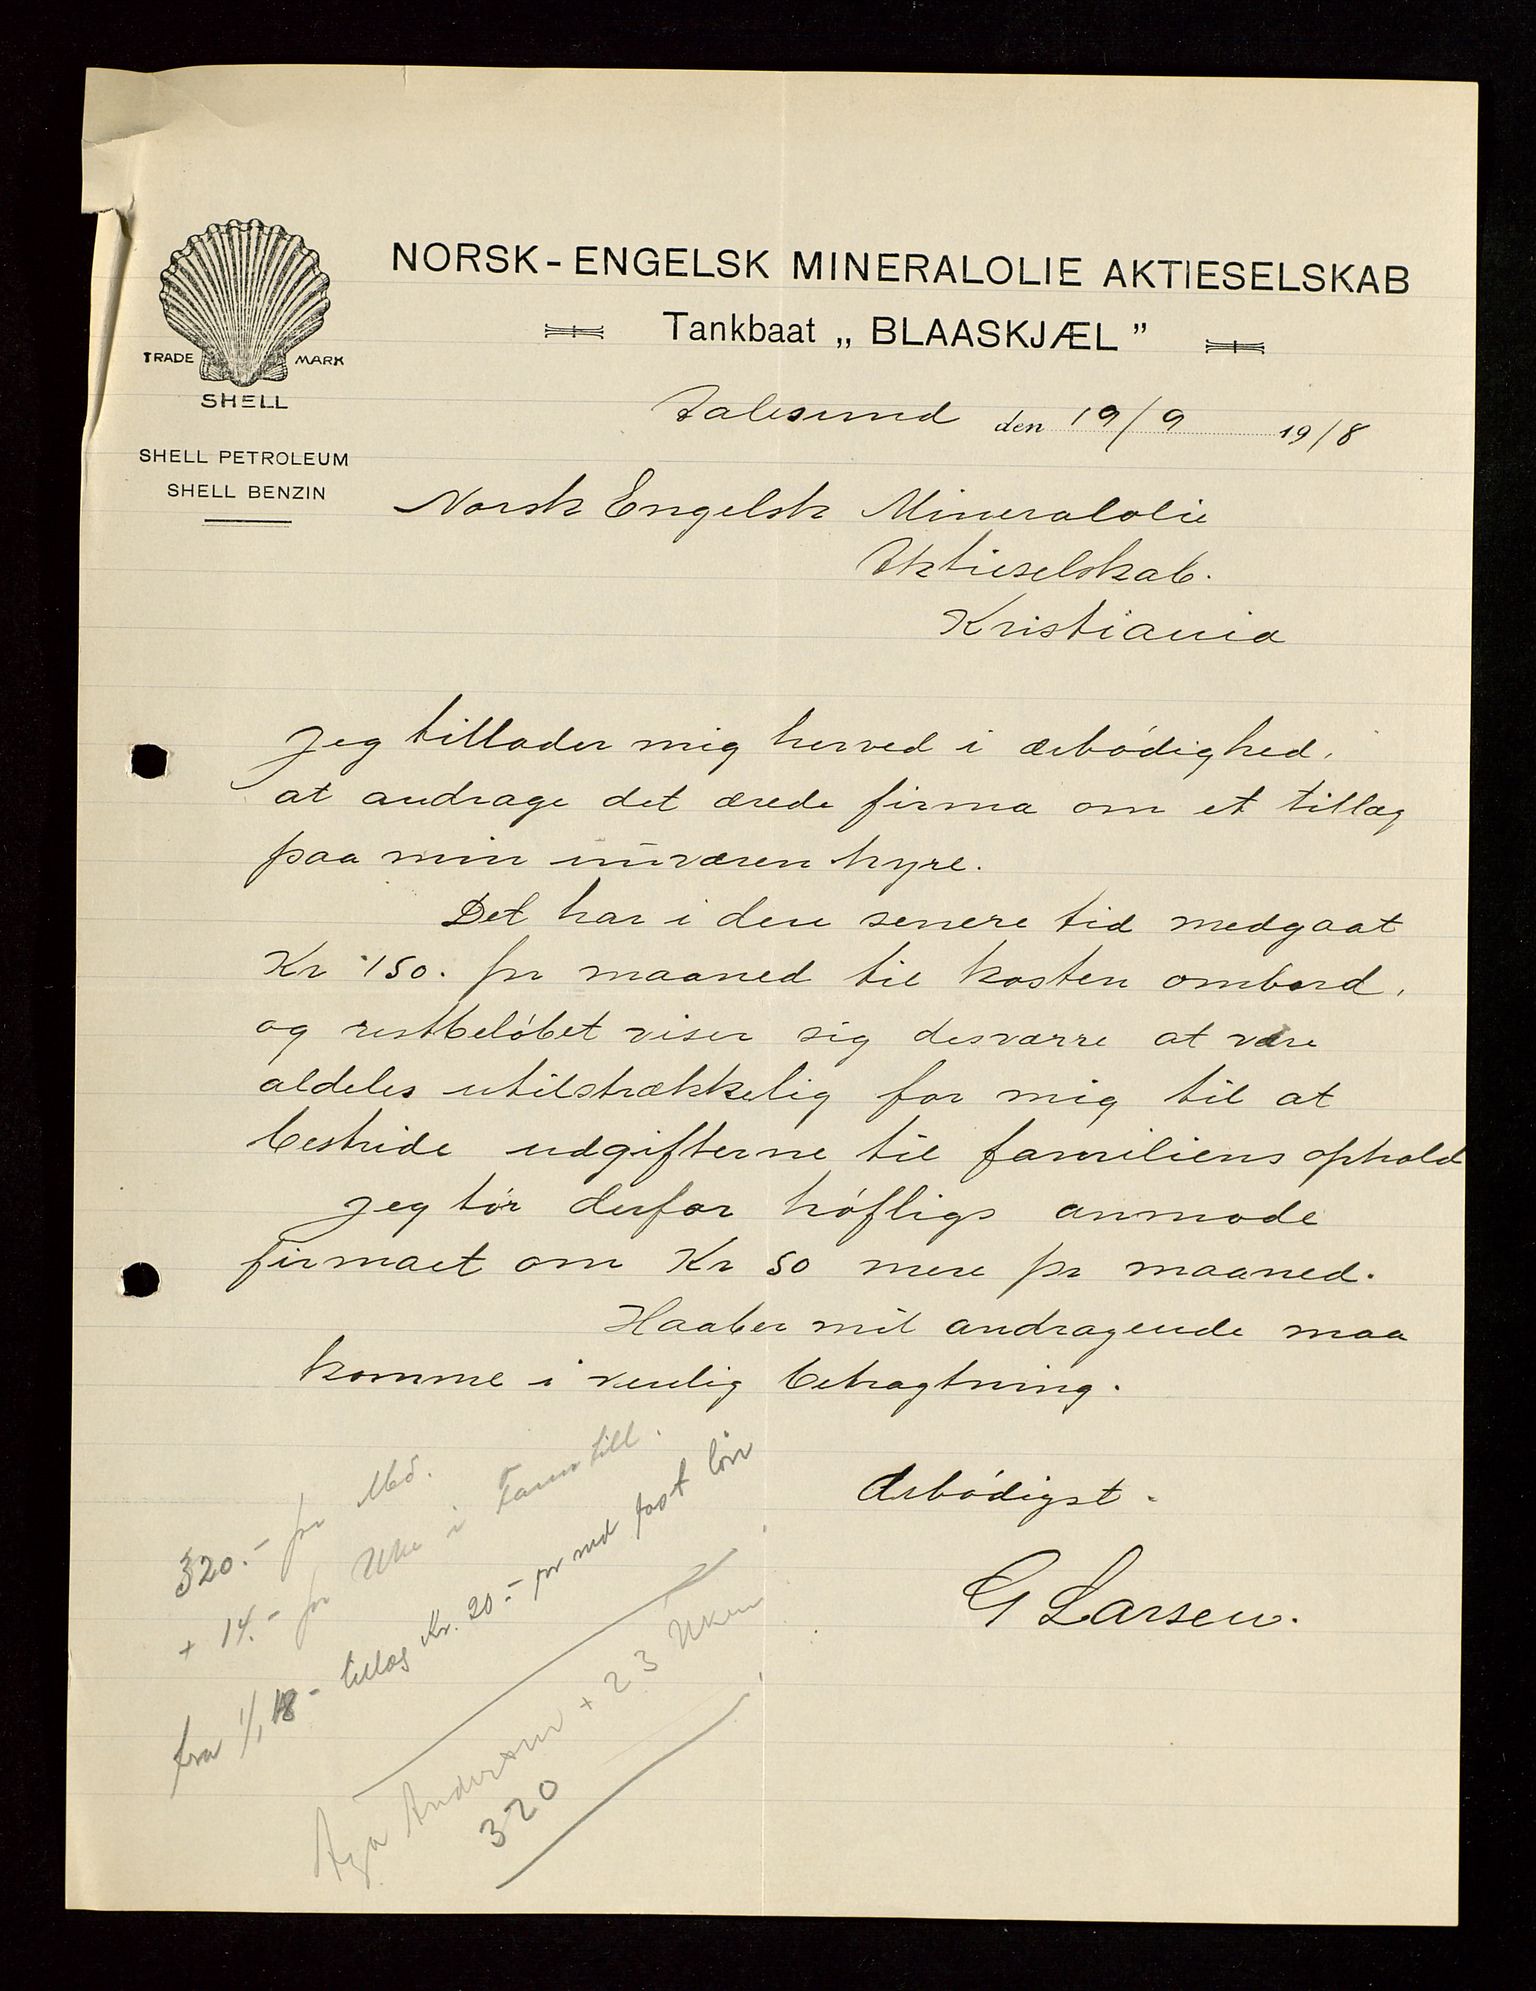 NORSK-ENGELSK MINERALOLIE AKTIESELSKAB
Tankbaat „BLAASKJÆL”
TRADE MARK
SHELL
SHELL PETROLEUM
SHELL BENZIN
Aalesund den 19/9 1918
Norsk Engelsk Mineralolie
Aktieselskab.
Kristiania
Jeg tillader mig herved i ærbødighed,
at andrage det ærede firma om et tillæg
paa min nuværen hyre.
Det har i den senere tid medgaat
Kr 150. pr maaned til kosten ombord,
og restbeløbet viser sig desværre at være
aldeles utilstrækkelig for mig til at
bestride udgifterne til familiens ophold
Jeg tør derfor høfligs anmode
firmaet om Kr 50 mere pr maaned.
Haaber mit andragende maa
komme i venlig betragtning.
Ærbødigst.
G Larsen.
320.- pr Md.
+ 14.- pr Uke i Famtill.
fra 1/1 18 - tillæg Kr. 20.- pr md fast løn
Andersen + 23 Uken
320